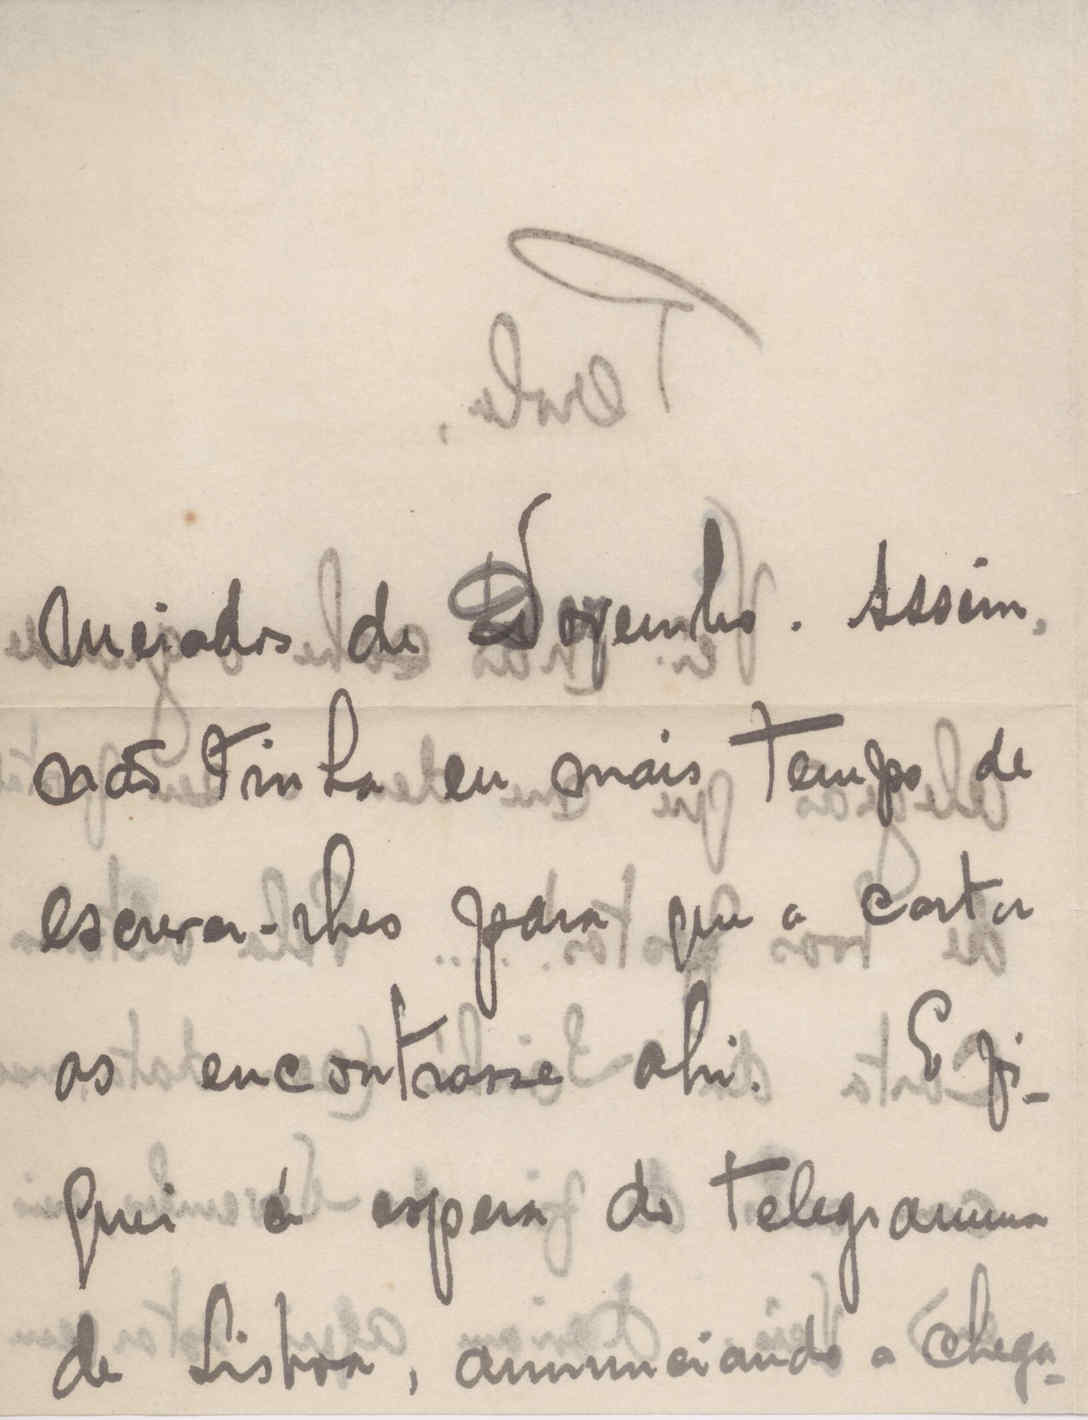 meiados de Novembro. Assim,
não tinha eu mais tempo de
escrever-lhes para que a carta
as encontrasse ahi. E fi-
quei á espera do telegramma
de Lisboa, annunciando a chega-